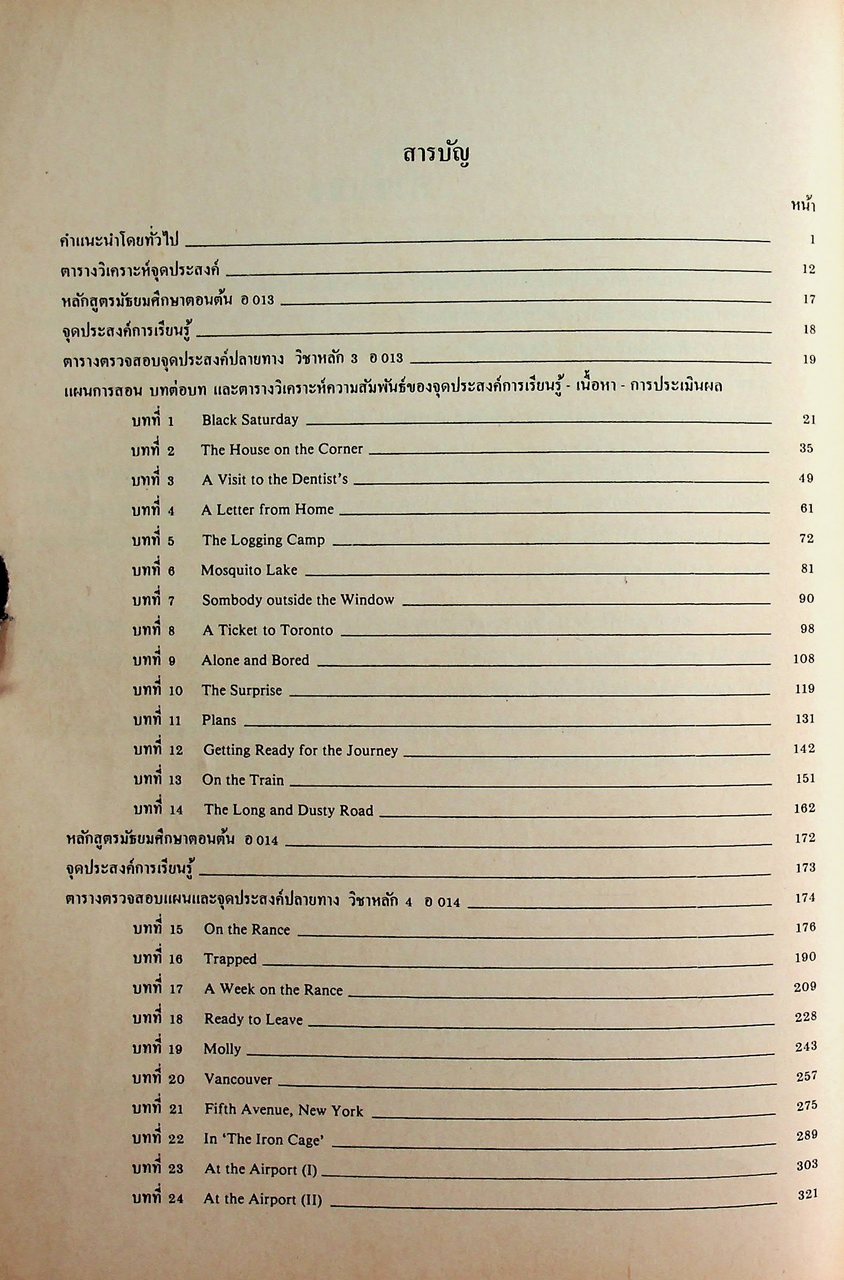 สารบัญ
หน้า
คำแนะนำโดยทั่วไป 1
ตารางวิเคราะห์จุดประสงค์ 12
หลักสูตรมัธยมศึกษาตอนต้น อ 013 17
จุดประสงค์การเรียนรู้ 18
ตารางตรวจสอบจุดประสงค์ปลายทาง วิชาหลัก 3 อ 013 19
แผนการสอน บทต่อบท และตารางวิเคราะห์ความสัมพันธ์ของจุดประสงค์การเรียนรู้ - เนื้อหา - การประเมินผล
บทที่ 1 Black Saturday 21
บทที่ 2 The House on the Corner 35
บทที่ 3 A Visit to the Dentist's 49
บทที่ 4 A Letter from Home 61
บทที่ 5 The Logging Camp 72
บทที่ 6 Mosquito Lake 81
บทที่ 7 Sombody outside the Window 90
บทที่ 8 A Ticket to Toronto 98
บทที่ 9 Alone and Bored 108
บทที่ 10 The Surprise 119
บทที่ 11 Plans 131
บทที่ 12 Getting Ready for the Journey 142
บทที่ 13 On the Train 151
บทที่ 14 The Long and Dusty Road 162
หลักสูตรมัธยมศึกษาตอนต้น อ 014 172
จุดประสงค์การเรียนรู้ 173
ตารางตรวจสอบแผนและจุดประสงค์ปลายทาง วิชาหลัก 4 อ 014 174
บทที่ 15 On the Rance 176
บทที่ 16 Trapped 190
บทที่ 17 A Week on the Rance 209
บทที่ 18 Ready to Leave 228
บทที่ 19 Molly 243
บทที่ 20 Vancouver 257
บทที่ 21 Fifth Avenue, New York 275
บทที่ 22 In 'The Iron Cage' 289
บทที่ 23 At the Airport (I) 303
บทที่ 24 At the Airport (II) 321